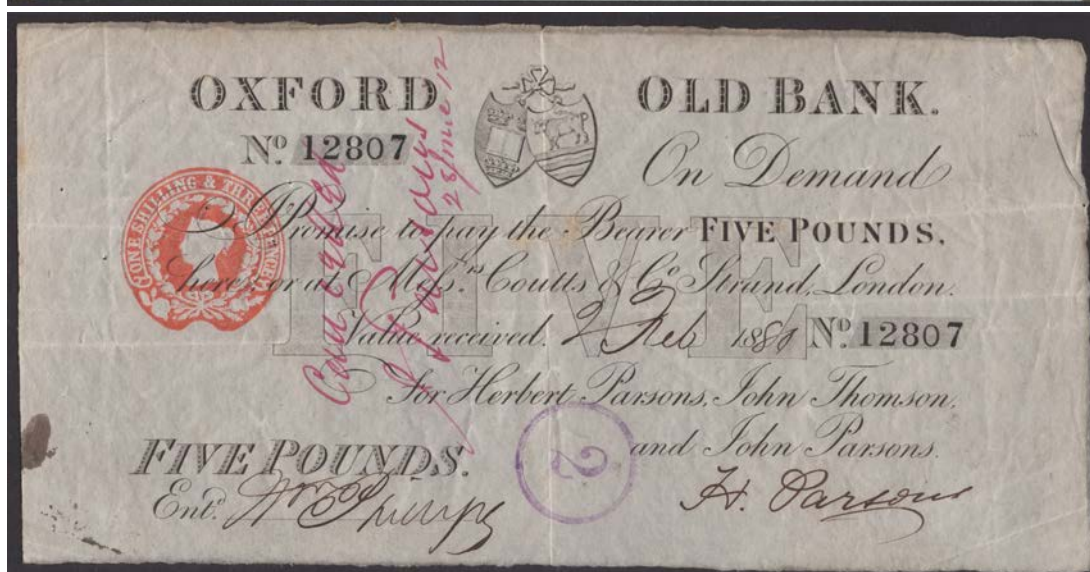 OXFORD OLD BANK.
Nº 12807
On Demand
ONE SHILLING & THREEPENCE
I Promise to pay the Bearer FIVE POUNDS.
here, or at Mess.rs Coutts & Co. Strand, London.
FIVE
Value received. 2 Feb 188 Nº 12807
For Herbert Parsons, John Thomson,
and John Parsons.
FIVE POUNDS.
Ent.d Wm Phillips
H. Parsons
2
Cancelled
28 June 12